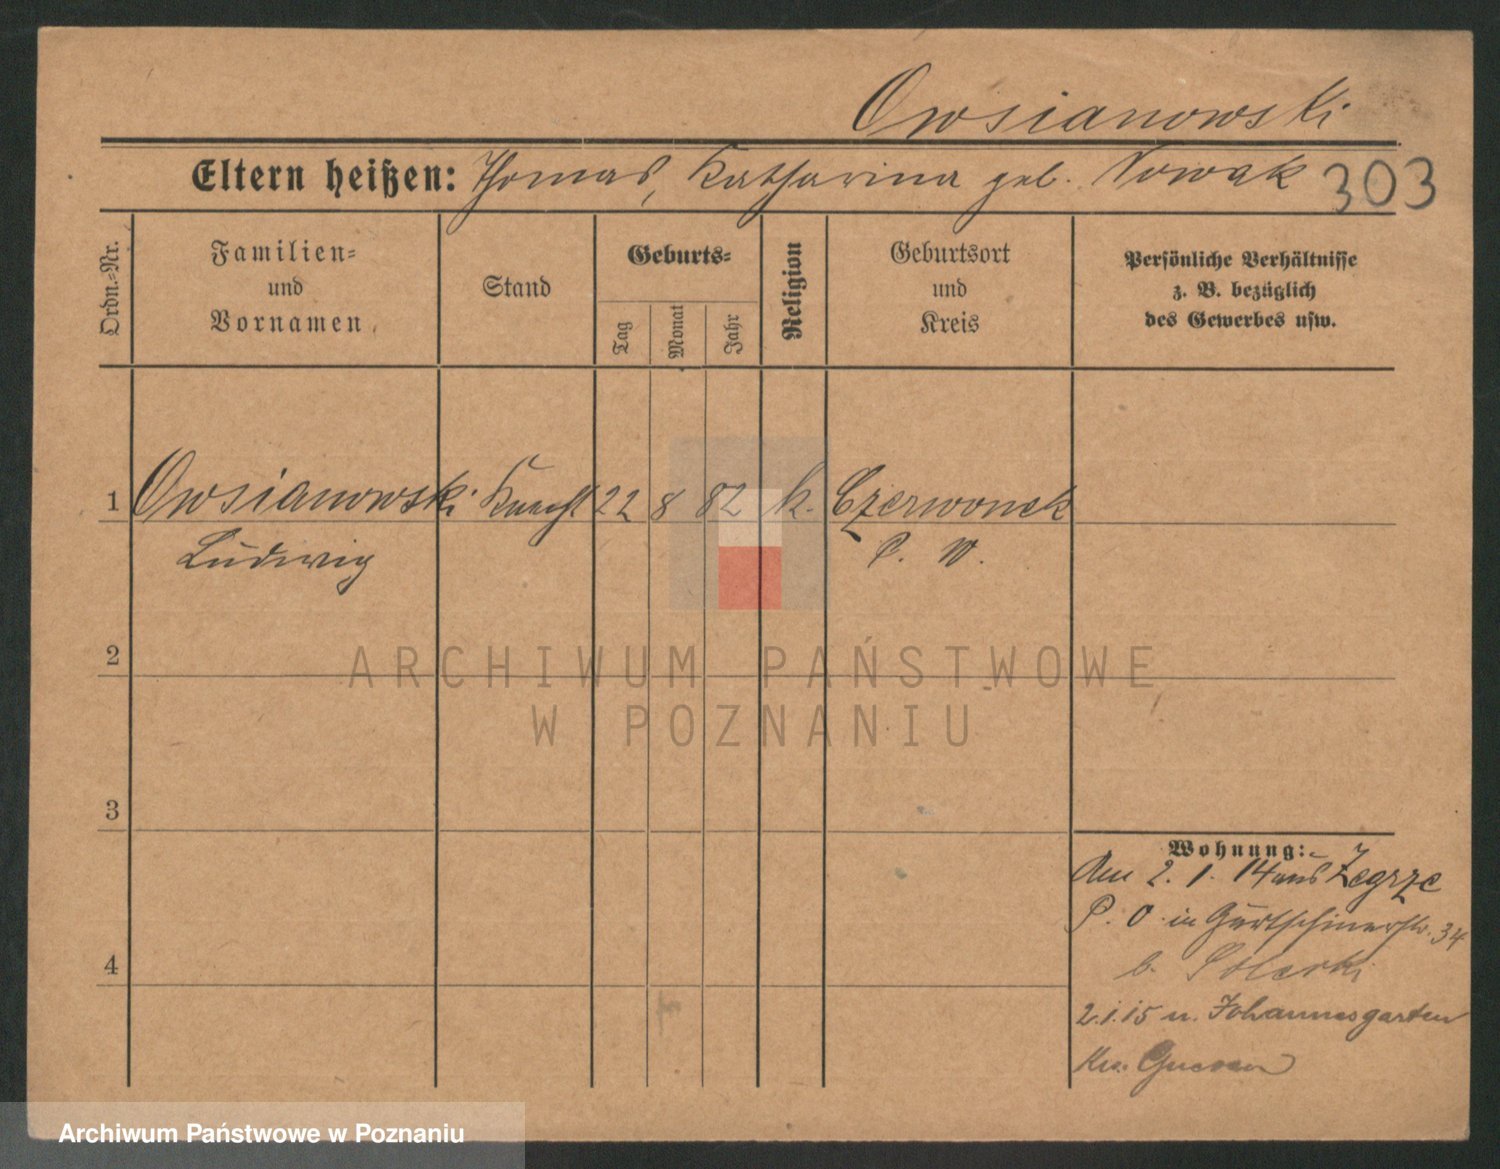 Owsianowski
Eltern heißen: Thomas, Katharina geb. Nowak 303
Ordn.-Nr.
Familien- und Vornamen
Stand
Geburts-
Tag
Monat
Jahr
Religion
Geburtsort und Kreis
Persönliche Verhältnisse
z. B. bezüglich
des Gewerbes usw.
1 Owsianowski Knecht 22 8 82 k. Czerwonek
Ludwig P. W.
2
ARCHIWUM PAŃSTWOWE
W POZNANIU
3
Wohnung:
Am 2. 1. 14 aus Zegrze
P. O in Gurtschinerstr. 34
b.
2.1.15 n. Johannesgarten
Krs. Gnesen
4
Archiwum Państwowe w Poznaniu